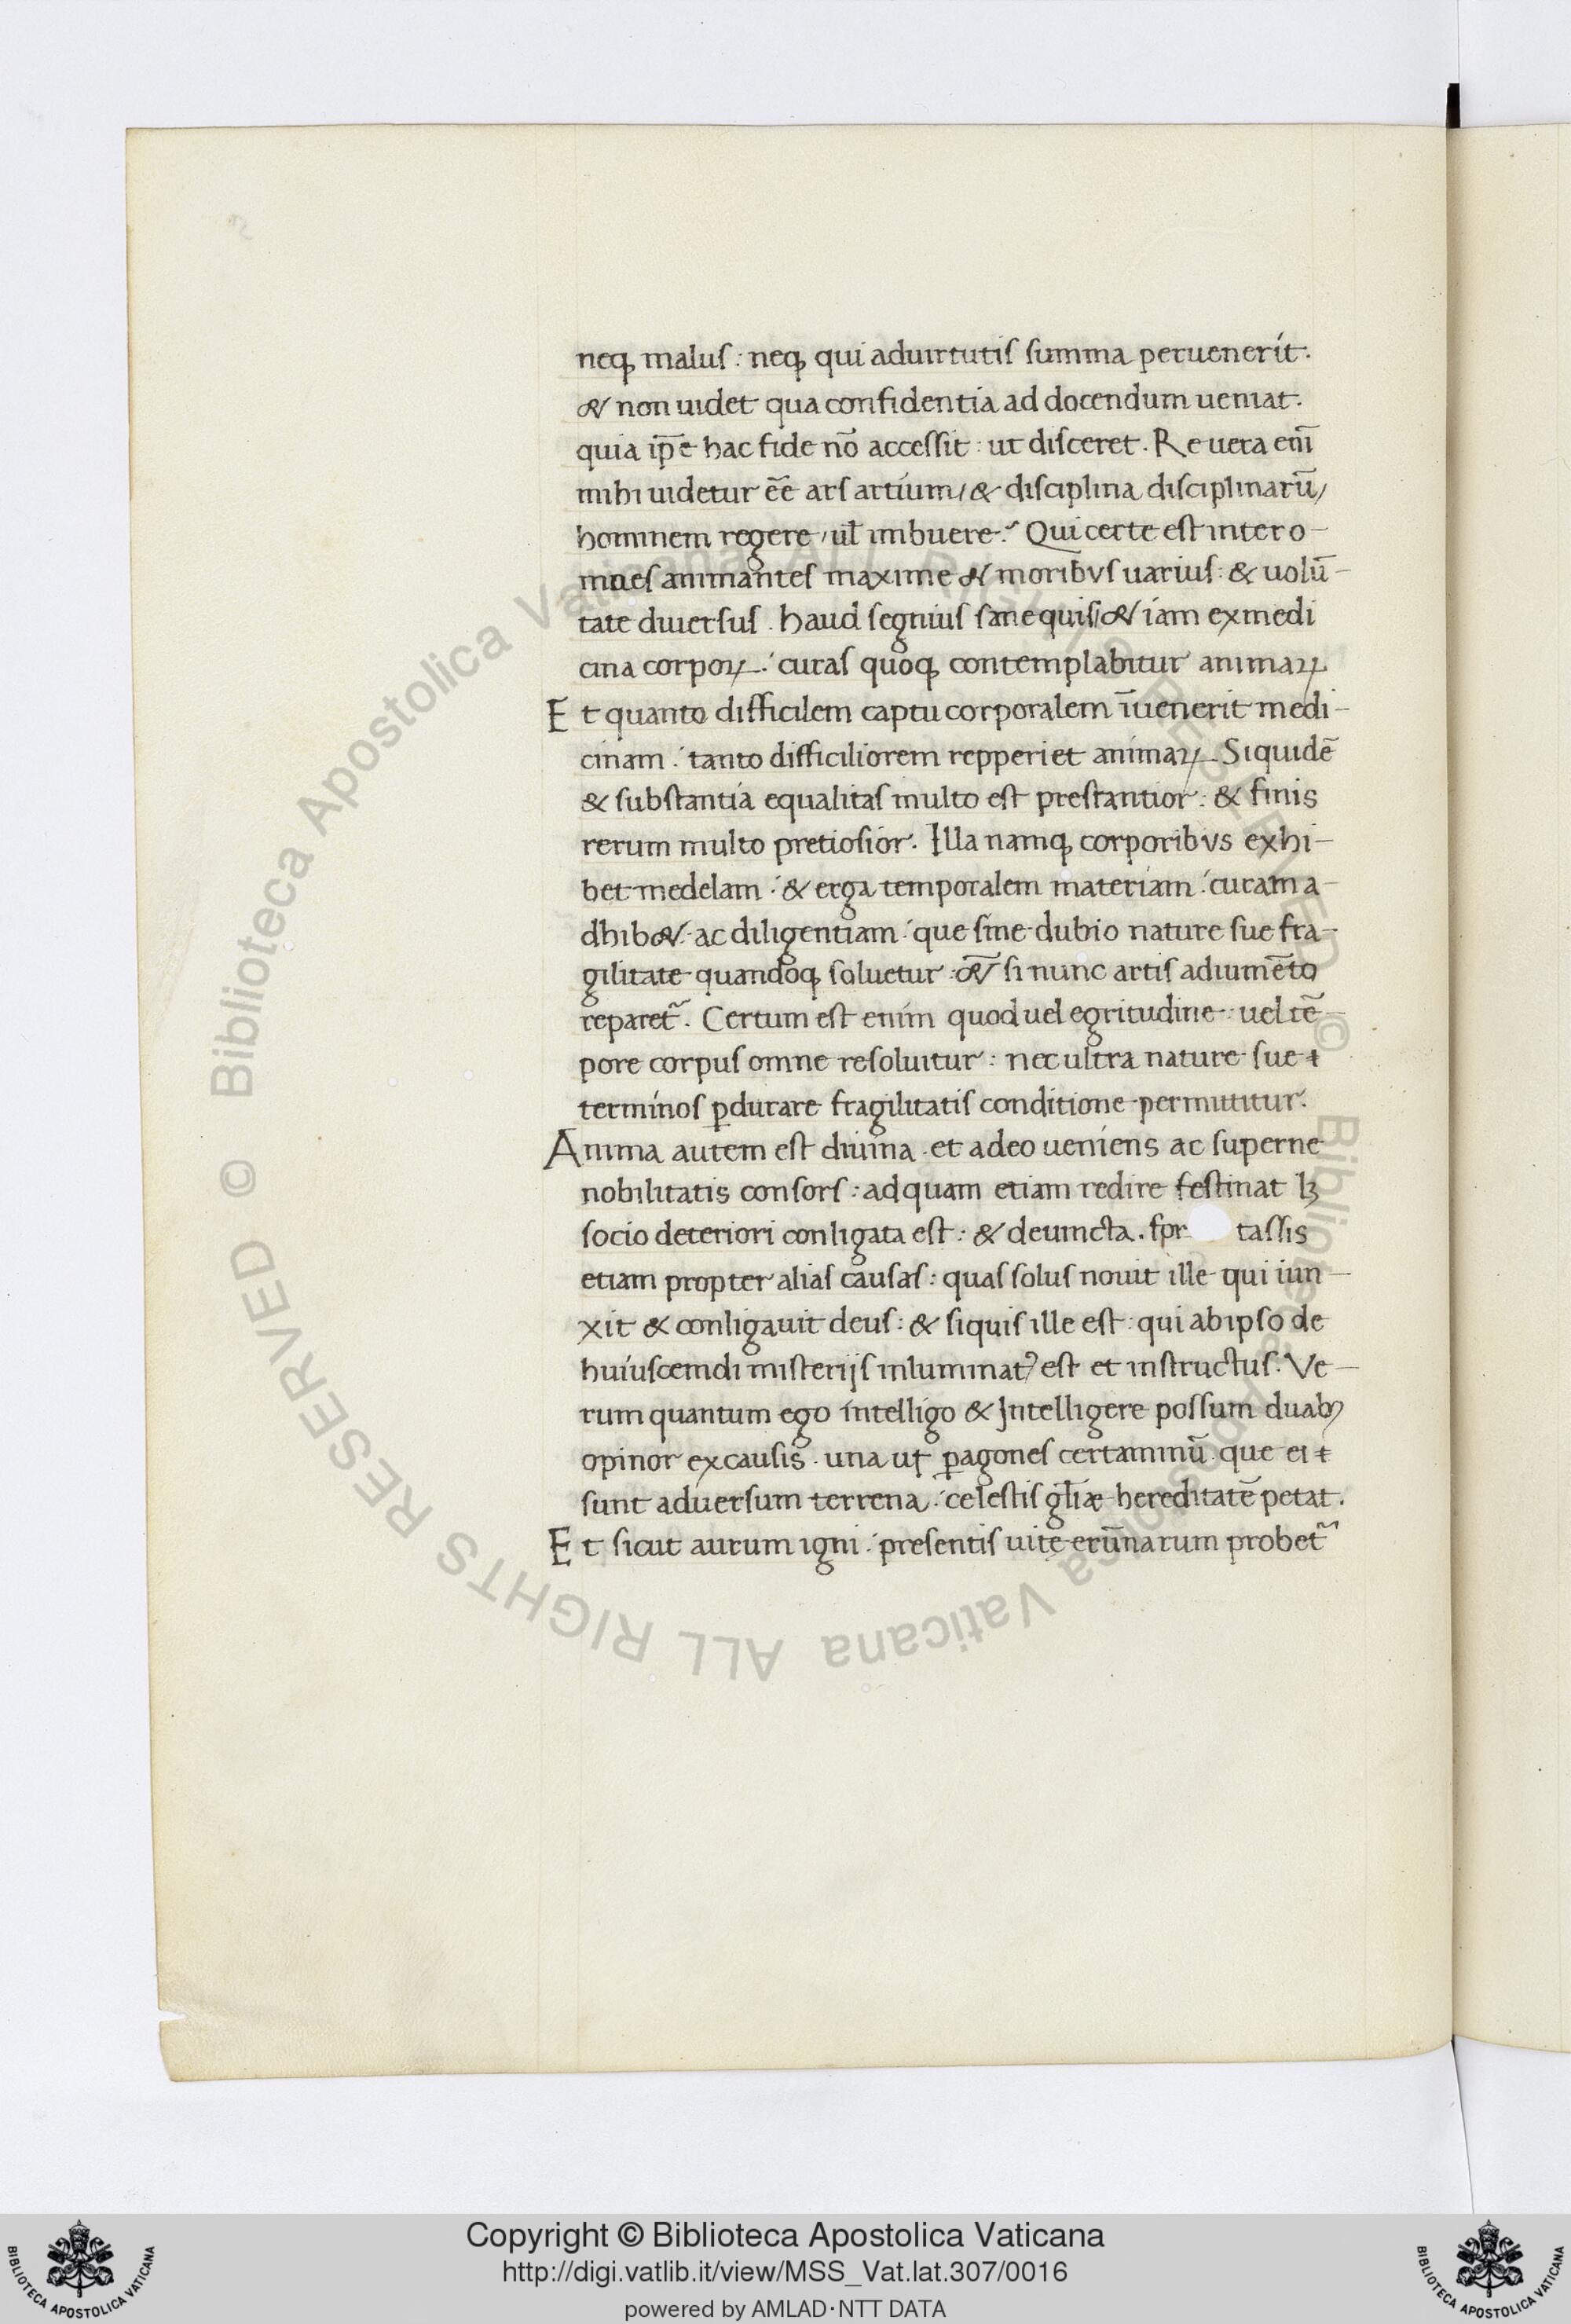 neqꝫ malus: neqꝫ qui aduirtutis summa peruenerit.
& non uidet qua confidentia ad docendum ueniat.
quia ip̄e hac fide nō accessit: ut disceret. Re uera enī
mihi uidetur ēe ars artium/ & disciplina disciplinarū/
hominem regere/ ul̄ imbuere. Qui certe est inter o-
mnes animantes maxime & moribus uarius: & uolū-
tate diuersus. haud segnius sane quis/ & iam ex medi
cina corpoꝝ: curas quoqꝫ contemplabitur animaꝝ
Et quanto difficilem captu corporalem īuenerit medi-
cinam: tanto difficiliorem repperiet animaꝝ Siquidē
& substantia equalitas multo est prestantior: & finis
rerum multo pretiosior. Illa namqꝫ corporibus exhi-
bet medelam: & erga temporalem materiam: curam a-
dhib&: ac diligentiam: que sine dubio nature sue fra-
gilitate quandoqꝫ soluetur: &̄ si nunc artis adiumēto
reparet᷑. Certum est enim quod uel egritudine: uel tē-
pore corpus omne resoluitur: nec ultra nature sue
terminos ꝑdurare fragilitatis conditione permittitur.
Anima autem est diuina. et adeo ueniens ac superne
nobilitatis consors: ad quam etiam redire festinat lꝫ
socio deteriori conligata est: & deuincta. for tassis
etiam propter alias causas: quas solus nouit ille qui iun-
xit & conligauit deus: & siquis ille est: qui ab ipso de
huiuscemdi misterijs inluminatꝰ est et instructus. Ve-
rum quantum ego intelligo & Intelligere possum duabꝰ
opinor ex causis. una ut ꝑ agones certaminū que ei
sunt aduersum terrena: celestis gl̄iæ hereditatē petat.
Et sicut aurum igni: presentis uitę erūnarum probet᷑
Copyright © Biblioteca Apostolica Vaticana
http://digi.vatlib.it/view/MSS_Vat.lat.307/0016
powered by AMLAD·NTT DATA